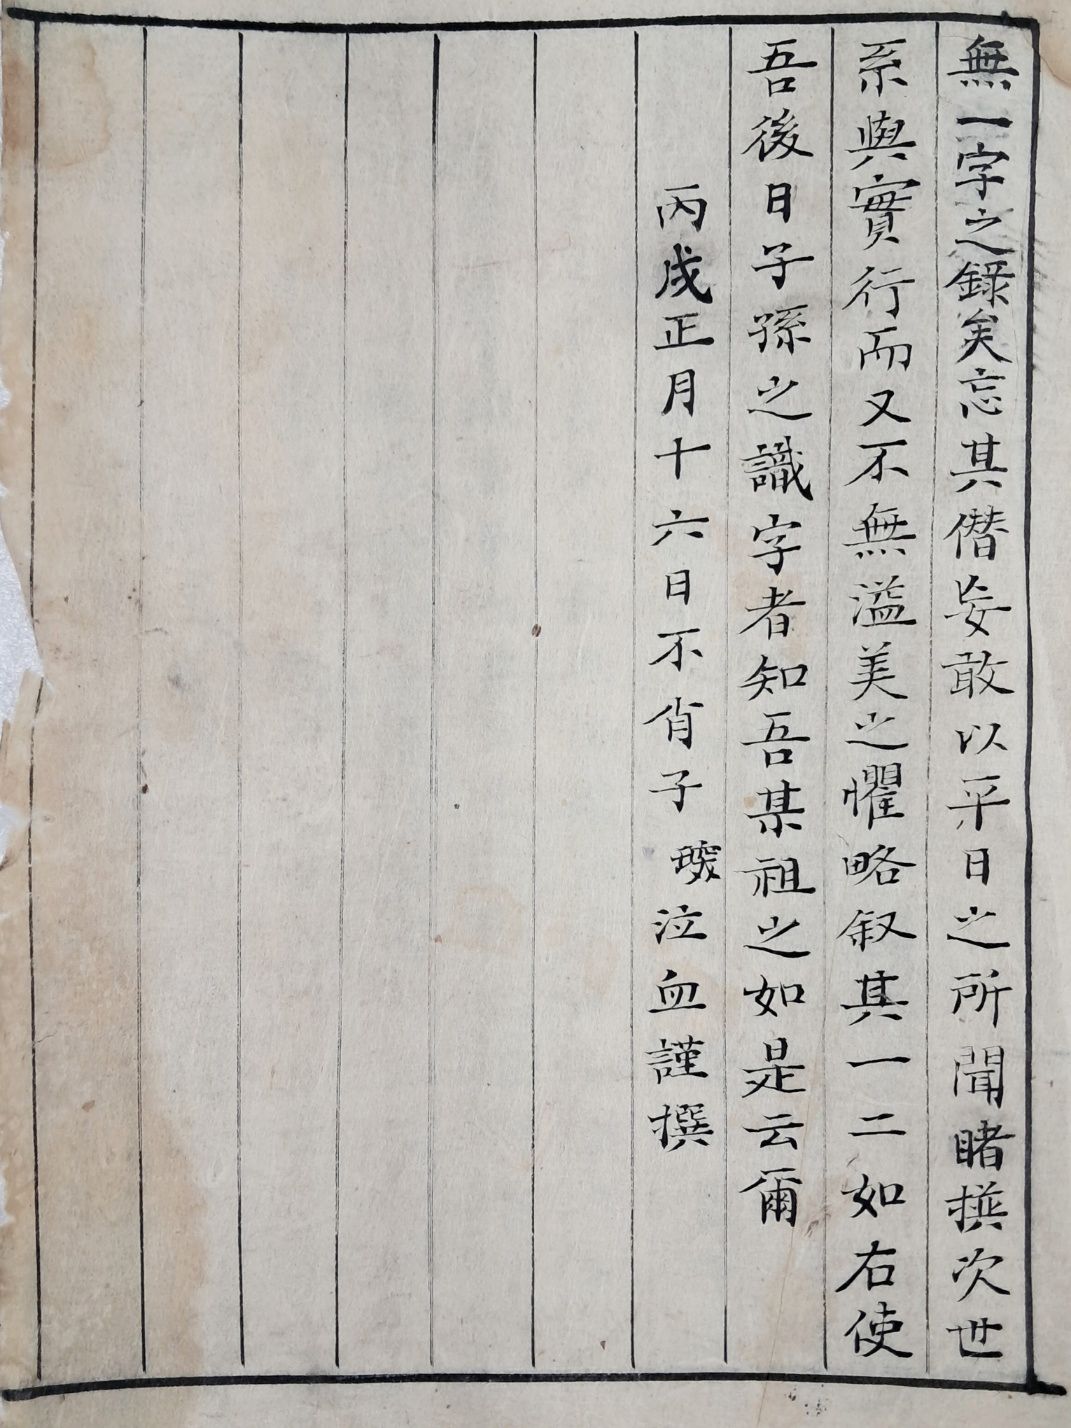 無一字之錄矣忘其僭妄敢以平日之所聞睹撰次世
系與實行而又不無溢美之懼略叙其一二如右使
吾後日子孫之識字者知吾某祖之如是云爾
丙戌正月十六日不肖子 泣血謹撰